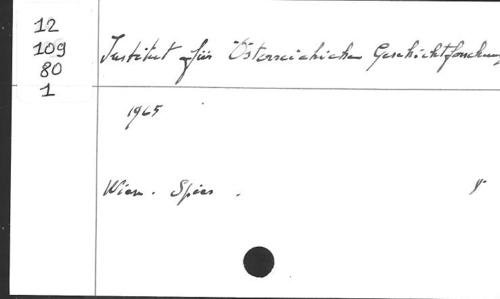 12
109
80
1
Institut für Österreichichen Geschichtforschung
1965
Wien. Spies.